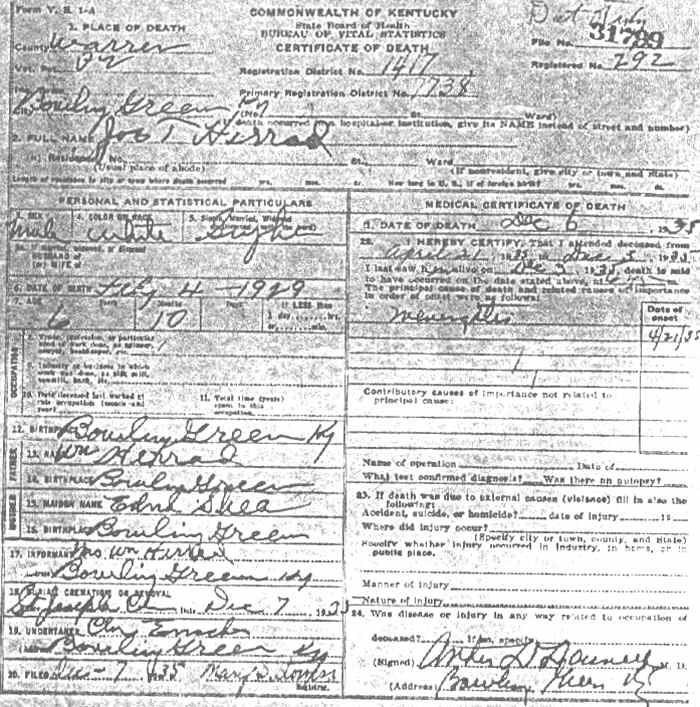 Form V. S. 1-A
COMMONWEALTH OF KENTUCKY
State Board of Health
BUREAU OF VITAL STATISTICS
CERTIFICATE OF DEATH
31799
File No.
Registered No. 292
1. PLACE OF DEATH
County Warren
Vot. Pct.
Registration District No. 1417
Primary Registration District No. 7738
Bowling Green Ky
(No. St. Ward)
death occurred in a hospital or institution, give its NAME instead of street and number)
2. FULL NAME Joe T Herrad
(a) Residence. No. St. Ward
(Usual place of abode) (If nonresident, give city or town and State)
Length of residence in city or town where death occurred yrs. mos. ds. How long in U. S., if of foreign birth? yrs. mos.
PERSONAL AND STATISTICAL PARTICULARS
3. SEX 4. COLOR OR RACE 5. Single, Married, Widowed
Male White Single
HUSBAND of
(or) WIFE of
6. DATE OF BIRTH 4 1929
7. AGE Years Months Days If LESS than
6 10 1 day, hrs.
or min.
OCCUPATION
8. Trade, profession, or particular
kind of work done, as spinner,
sawyer, bookkeeper, etc.
9. Industry or business in which
work was done, as silk mill,
sawmill, bank, etc.
10. Date deceased last worked at
this occupation (month and
year)
11. Total time (years)
spent in this
occupation
12. BIRTHPLACE Bowling Green Ky
13. NAME Wm Herrad
14. BIRTHPLACE Bowling Green
15. MAIDEN NAME Shea
16. BIRTHPLACE Bowling Green
17. INFORMANT Mrs Wm
Bowling Green Ky
18. BURIAL CREMATION OR REMOVAL
St Joseph Date Dec 7 1935
19. UNDERTAKER
Bowling Green Ky
20. FILED Dec - 7 1935
Registrar
MEDICAL CERTIFICATE OF DEATH
21. DATE OF DEATH Dec 6 1935
22. I HEREBY CERTIFY, That I attended deceased from
April 21 1935 to Dec 5 1935
I last saw him alive on Dec 5 1935, death is said
to have occurred on the date stated above, at
The principal cause of death and related causes of importance
in order of onset were as follows:
Date of
onset
4/21/35
Contributory causes of importance not related to
principal cause:
Name of operation Date of
What test confirmed diagnosis? Was there an autopsy?
23. If death was due to external causes (violence) fill in also the
following:
Accident, suicide, or homicide? date of injury 19
Where did injury occur?
(Specify city or town, county, and State)
Specify whether injury occurred in industry, in home, or in
public place.
Manner of injury
Nature of injury
24. Was disease or injury in any way related to occupation of
deceased? If so, specify
(Signed) M. D.
(Address) Bowling Green Ky